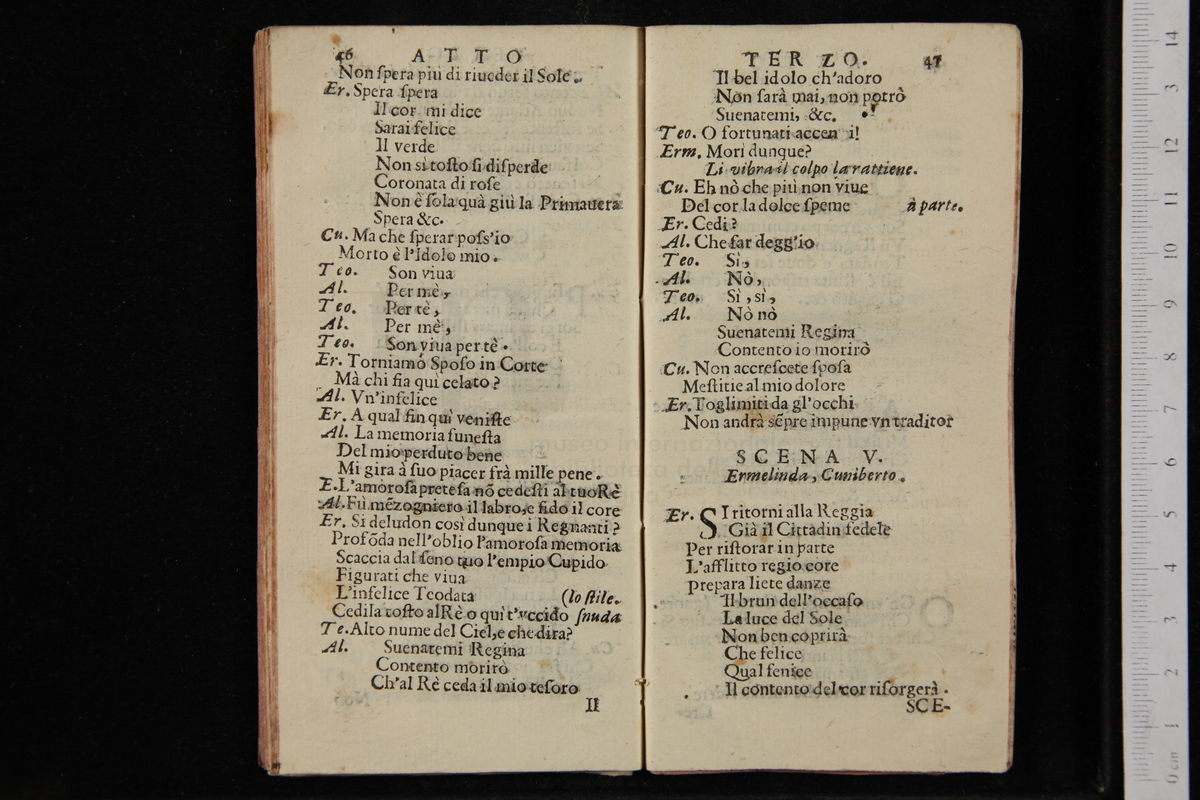 46 ATTO
Non ſpera più di riueder il Sole.
Er. Spera ſpera
Il cor mi dice
Sarai felice
Il verde
Non sì toſto ſi diſperde
Coronata di roſe
Non è ſola quà giù la Primauera
Spera &c.
Cu. Ma che ſperar poſs'io
Morto è l'Idolo mio.
Teo. Son viua
Al. Per mè,
Teo. Per tè,
Al. Per mè,
Teo. Son viua per tè.
Er. Torniamo Spoſo in Corte
Mà chi ſia qui celato?
Al. Vn'infelice
Er. A qual fin quì veniſte
Al. La memoria funeſta
Del mio perduto bene
Mi gira à ſuo piacer frà mille pene.
E. L'amoroſa preteſa nõ cedeſti al tuo Rè
Al. Fù mẽzogniero il labro, e fido il core
Er. Si deludon così dunque i Regnanti?
Profõda nell'oblio l'amoroſa memoria
Scaccia dal ſeno tuo l'empio Cupido
Figurati che viua
L'infelice Teodata (lo ſtile.
Cedila toſto al Rè o quì t'vccido ſnuda
Te. Alto nume del Ciel, e che dira?
Al. Suenatemi Regina
Contento morirò
Ch'al Rè ceda il mio teſoro
Il
TERZO. 47
Il bel idolo ch'adoro
Non ſarà mai, non potrò
Suenatemi, &c.
Teo. O fortunati accen i!
Erm. Mori dunque?
Li vibra il colpo la rattiene.
Cu. Eh nò che più non viue
Del cor la dolce ſpeme à parte.
Er. Cedi?
Al. Che far degg'io
Teo. Sì,
Al. Nò,
Teo. Sì, sì,
Al. Nò nò
Suenatemi Regina
Contento io morirò
Cu. Non accreſcete ſpoſa
Meſtitie al mio dolore
Er. Toglimiti da gl'occhi
Non andrà sẽpre impune vn traditor
SCENA V.
Ermelinda, Cuniberto.
Er. SI ritorni alla Reggia
Già il Cittadin fedele
Per riſtorar in parte
L'afflitto regio core
Prepara liete danze
Il brun dell'occaſo
La luce del Sole
Non ben coprirà
Che felice
Qual fenice
Il contento del cor riſorgerà.
SCE-